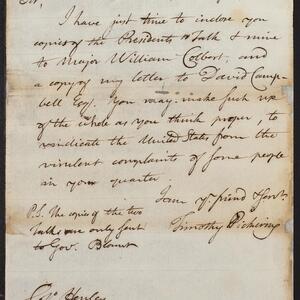 Sir,
I have just time to inclose you
copies of the Presidents Talk & mine
to Major William Colbert, and
a copy of my letter to David Camp-
bell Esq. You may make such use
of the whole as you think proper, to
vindicate the United States from the
virulent complaints of some people
in your quarter.
I am yr. friend & servt.
Timothy Pickering
P.S. The copies of the two
talks are only sent
to Gov. Blount
Colo. Henley